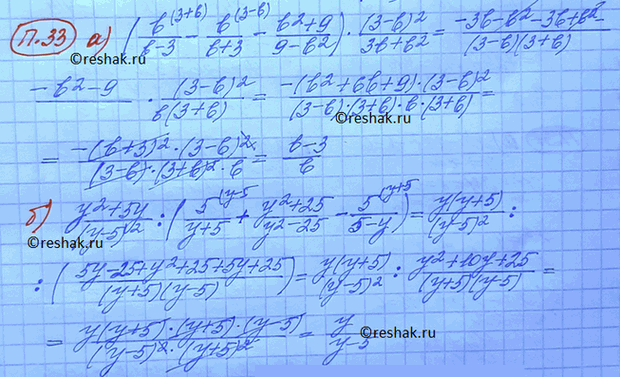 П.33 а) (b^(3+b)/(b-3) - b^(3-b)/(b+3) - (b²+9)/(9-b²)) · (3-b)²/(3b+b²) = (-3b-b²-3b+b²-)/((3-b)(3+b))
(-b²-9)/ · (3-b)²/(b(3+b)) = (-(b²+6b+9)·(3-b)²)/((3-b)·(3+b)·b·(3+b)) =
= (-(b+3)²·(3-b)²)/((3-b)·(3+b)²·b) = (b-3)/b
б) (y²+5y)/(y-5)² : (5^(y-5/(y+5) + (y²+25)/(y²-25) - 5^(y+5/(5-y)) = y(y+5)/(y-5)² :
: ((5y-25+y²+25+5y+25)/((y+5)(y-5))) = y(y+5)/(y-5)² : (y²+10y+25)/((y+5)(y-5)) =
= (y(y+5)·(y+5)·(y-5))/((y-5)²·(y+5)²) = y/(y-5)
©reshak.ru
©reshak.ru
©reshak.ru
©reshak.ru